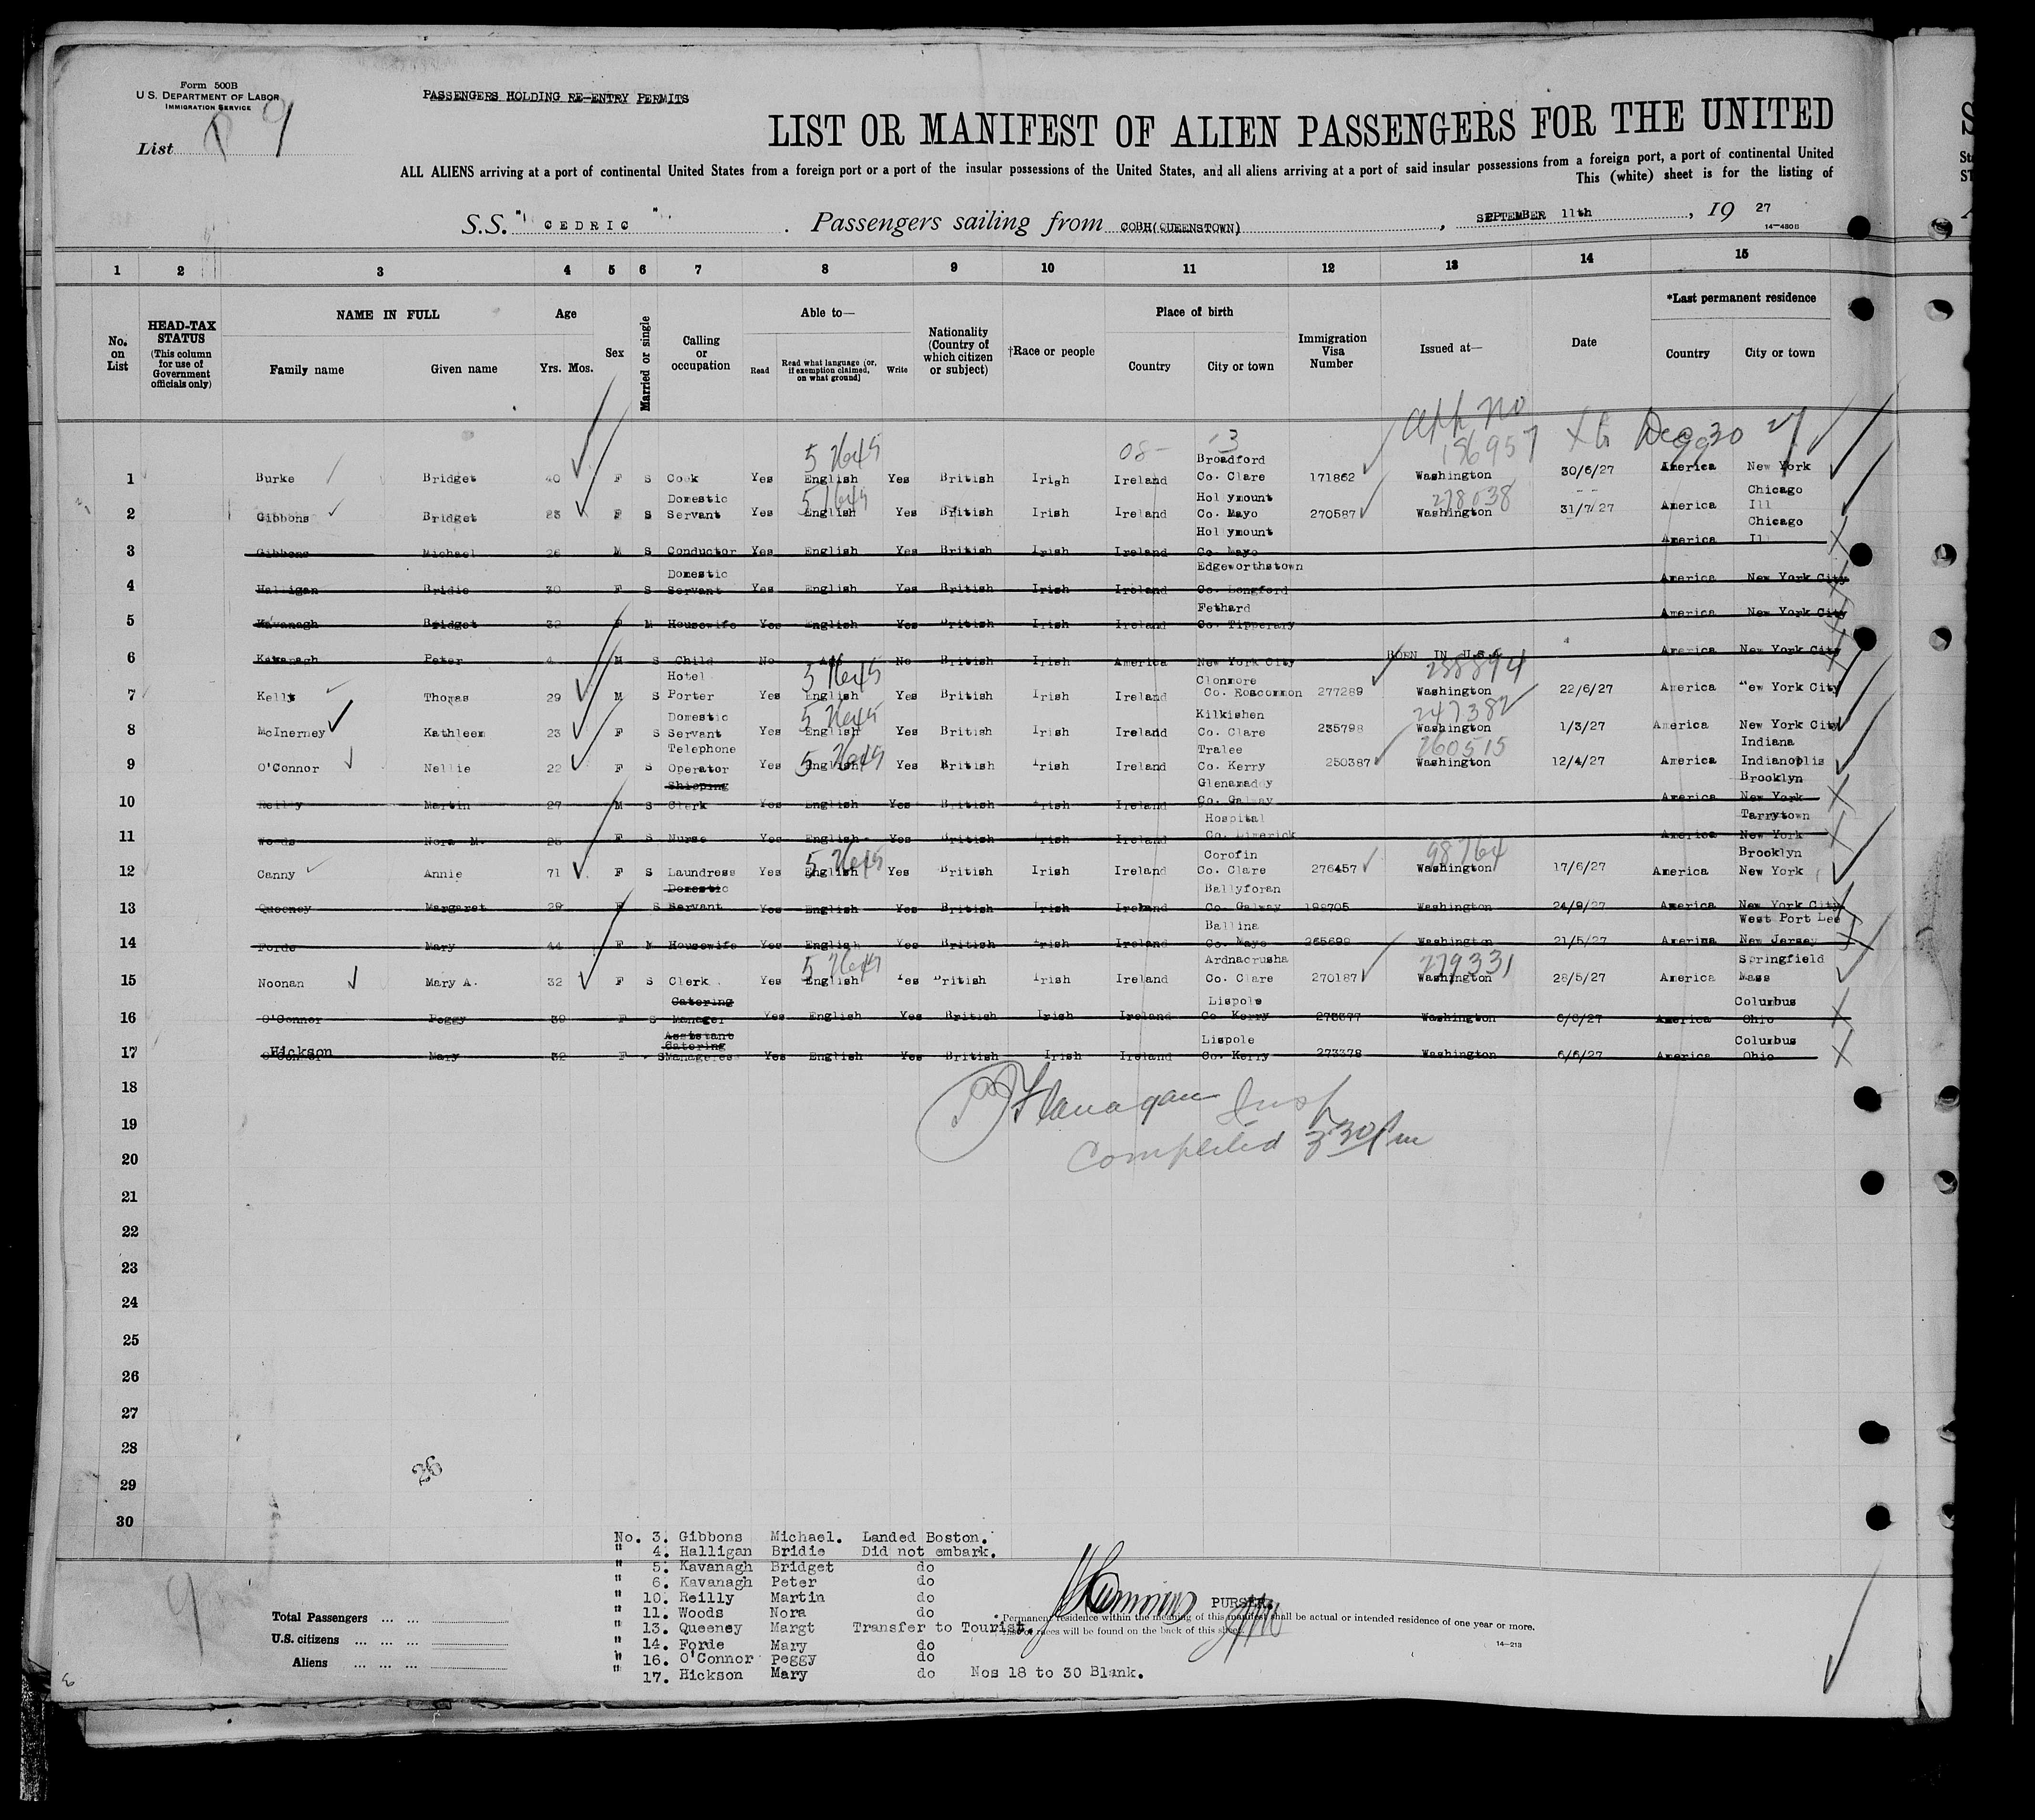 Form 500B
U.S. DEPARTMENT OF LABOR
IMMIGRATION SERVICE
PASSENGERS HOLDING RE-ENTRY PERMITS
List 9
LIST OR MANIFEST OF ALIEN PASSENGERS FOR THE UNITED
ALL ALIENS arriving at a port of continental United States from a foreign port or a port of the insular possessions of the United States, and all aliens arriving at a port of said insular possessions from a foreign port, a port of continental United
This (white) sheet is for the listing of
S.S. " CEDRIC ". Passengers sailing from COBH(QUEENSTOWN), SEPTEMBER 11th, 19 27
14-480B
1 2 3 4 5 6 7 8 9 10 11 12 13 14 15
No. on List
HEAD-TAX STATUS (This column for use of Government officials only)
NAME IN FULL
Family name Given name
Age
Yrs. Mos.
Sex
Married or single
Calling or occupation
Able to—
Read Read what language (or, if exemption claimed, on what ground) Write
Nationality (Country of which citizen or subject)
†Race or people
Place of birth
Country City or town
Immigration Visa Number
Issued at—
Date
*Last permanent residence
Country City or town
App no 186957 Dec 30 27
1 Burke Bridget 40 F S Cook Yes English Yes British Irish Ireland Broadford Co. Clare 171862 Washington 30/6/27 America New York
278038
2 Gibbons Bridget 23 F S Domestic Servant Yes English Yes British Irish Ireland Hollymount Co. Mayo 270587 Washington 31/7/27 America Chicago Ill
3 Gibbons Michael 26 M S Conductor Yes English Yes British Irish Ireland Hollymount Co. Mayo America Chicago Ill
4 Halligan Bridie 30 F S Domestic Servant Yes English Yes British Irish Ireland Edgeworthstown Co. Longford America New York City
5 Kavanagh Bridget 32 F M Housewife Yes English Yes British Irish Ireland Fethard Co. Tipperary America New York City
6 Kavanagh Peter 4 M S Child No Age No British Irish America New York City BORN IN U.S.A. America New York City
288894
7 Kelly Thomas 29 M S Hotel Porter Yes English Yes British Irish Ireland Clonmore Co. Roscommon 277289 Washington 22/6/27 America New York City
247382
8 McInerney Kathleen 23 F S Domestic Servant Yes English Yes British Irish Ireland Kilkishen Co. Clare 235798 Washington 1/3/27 America New York City
260515
9 O'Connor Nellie 22 F S Telephone Operator Yes English Yes British Irish Ireland Tralee Co. Kerry 250387 Washington 12/4/27 America Indiana Indianoplis
10 Reilly Martin 27 M S Shipping Clerk Yes English Yes British Irish Ireland Glenamaddy Co. Galway America Brooklyn New York
11 Woods Nora M. 25 F S Nurse Yes English Yes British Irish Ireland Hospital Co. Limerick America Tarrytown New York
98764
12 Canny Annie 71 F S Laundress Yes English Yes British Irish Ireland Corofin Co. Clare 276457 Washington 17/6/27 America Brooklyn New York
13 Queeney Margaret 29 F S Domestic Servant Yes English Yes British Irish Ireland Ballyforan Co. Galway 198705 Washington 24/9/27 America New York City
14 Forde Mary 44 F M Housewife Yes English Yes British Irish Ireland Ballina Co. Mayo 265699 Washington 21/5/27 America West Port Lee New Jersey
279331
15 Noonan Mary A. 32 F S Clerk Yes English Yes British Irish Ireland Ardnacrusha Co. Clare 270187 Washington 28/5/27 America Springfield Mass
16 O'Connor Peggy 39 F S Catering Manager Yes English Yes British Irish Ireland Lispole Co Kerry 273377 Washington 6/6/27 America Columbus Ohio
17 O'Connor Hickson Mary 32 F S Assistant Catering Manageress Yes English Yes British Irish Ireland Lispole Co. Kerry 273378 Washington 6/6/27 America Columbus Ohio
18
Flanagan Insp
19
Completed 3 30 Pm
20
21
22
23
24
25
26
27
28
26
29
30
No. 3. Gibbons Michael. Landed Boston.
" 4. Halligan Bridie Did not embark.
" 5. Kavanagh Bridget do
" 6. Kavanagh Peter do
" 10. Reilly Martin do
" 11. Woods Nora do
" 13. Queeney Margt Transfer to Tourist.
" 14. Forde Mary do
" 16. O'Connor Peggy do
" 17. Hickson Mary do Nos 18 to 30 Blank.
9
Total Passengers ... ...
U.S. citizens ... ... ...
Aliens ... ... ...
PURSER.
* Permanent residence within the meaning of this manifest shall be actual or intended residence of one year or more.
† List of races will be found on the back of this sheet.
14-213